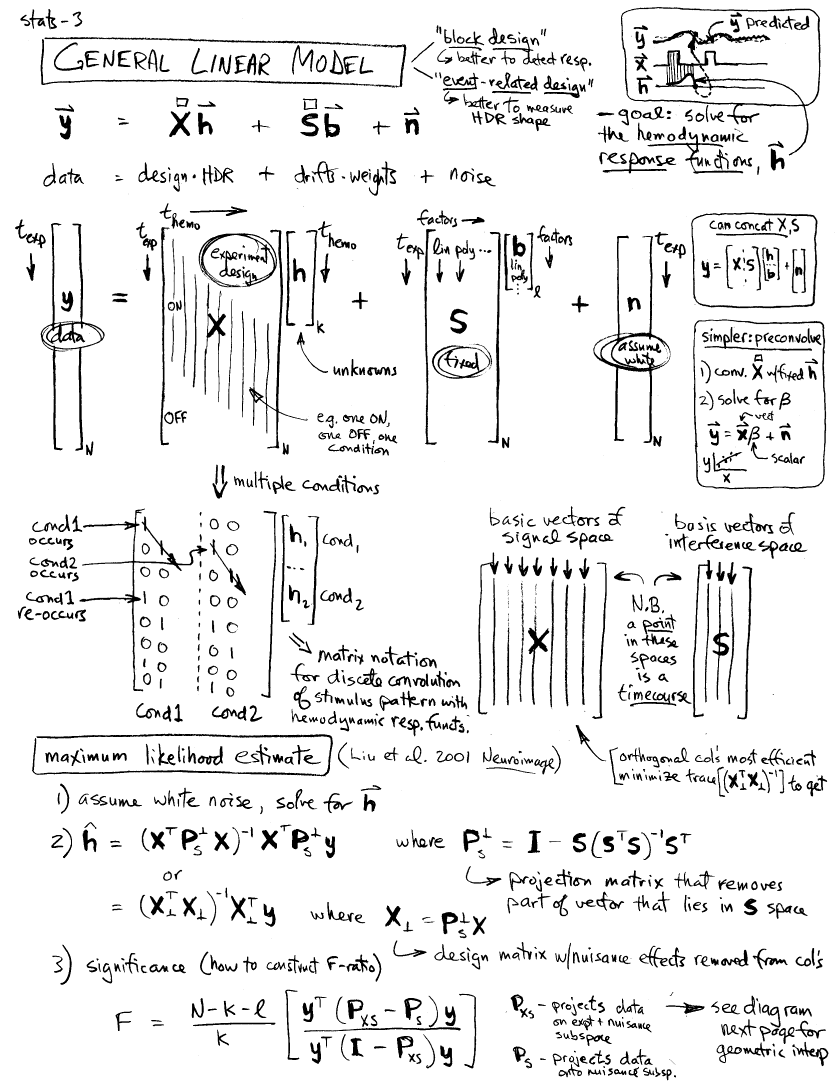 stats-3
GENERAL LINEAR MODEL
"block design"
↳ better to detect resp.
"event-related design"
↳ better to measure
HDR shape
y
y predicted
x
h
– goal: solve for
the hemodynamic
response functions, h
y = Xh + Sb + n
data = design·HDR + drifts·weights + noise
t_exp
y
data
N
=
t_hemo →
t_exp
experiment
design
ON
X
OFF
N
h
t_hemo
k
unknowns
e.g. one ON,
one OFF, one
condition
+
factors →
t_exp
lin poly ...
S
fixed
N
b
lin
poly
factors
l
+
n
assume
white
t_exp
N
can concat X,S
y = [X S][h b] + [n]
simpler: preconvolve
1) conv. X w/fixed h
2) solve for β
vect
y = xβ + n
scalar
y
x
⇓ multiple conditions
cond1
occurs
cond2
occurs
cond1
re-occurs
cond1 cond2
h₁ cond₁
...
h₂ cond₂
matrix notation
for discrete convolution
of stimulus pattern with
hemodynamic resp. functs.
basic vectors of
signal space
X
basis vectors of
interference space
S
N.B.
a point
in these
spaces
is a
timecourse
orthogonal col's most efficient
minimize trace[(X⊥ᵀX⊥)⁻¹] to get
maximum likelihood estimate (Liu et al. 2001 Neuroimage)
1) assume white noise, solve for h
2) ĥ = (XᵀP_S^⊥X)⁻¹XᵀP_S^⊥y where P_S^⊥ = I – S(SᵀS)⁻¹Sᵀ
↳ projection matrix that removes
part of vector that lies in S space
or
= (X⊥ᵀX⊥)⁻¹X⊥ᵀy where X⊥ = P_S^⊥X
↳ design matrix w/nuisance effects removed from col's
3) significance (how to construct F-ratio)
F = (N-k-l)/k [yᵀ(P_XS – P_S)y / yᵀ(I – P_XS)y]
P_XS – projects data
on expt + nuisance
subspace
P_S – projects data
onto nuisance subsp.
→ see diagram
next page for
geometric interp